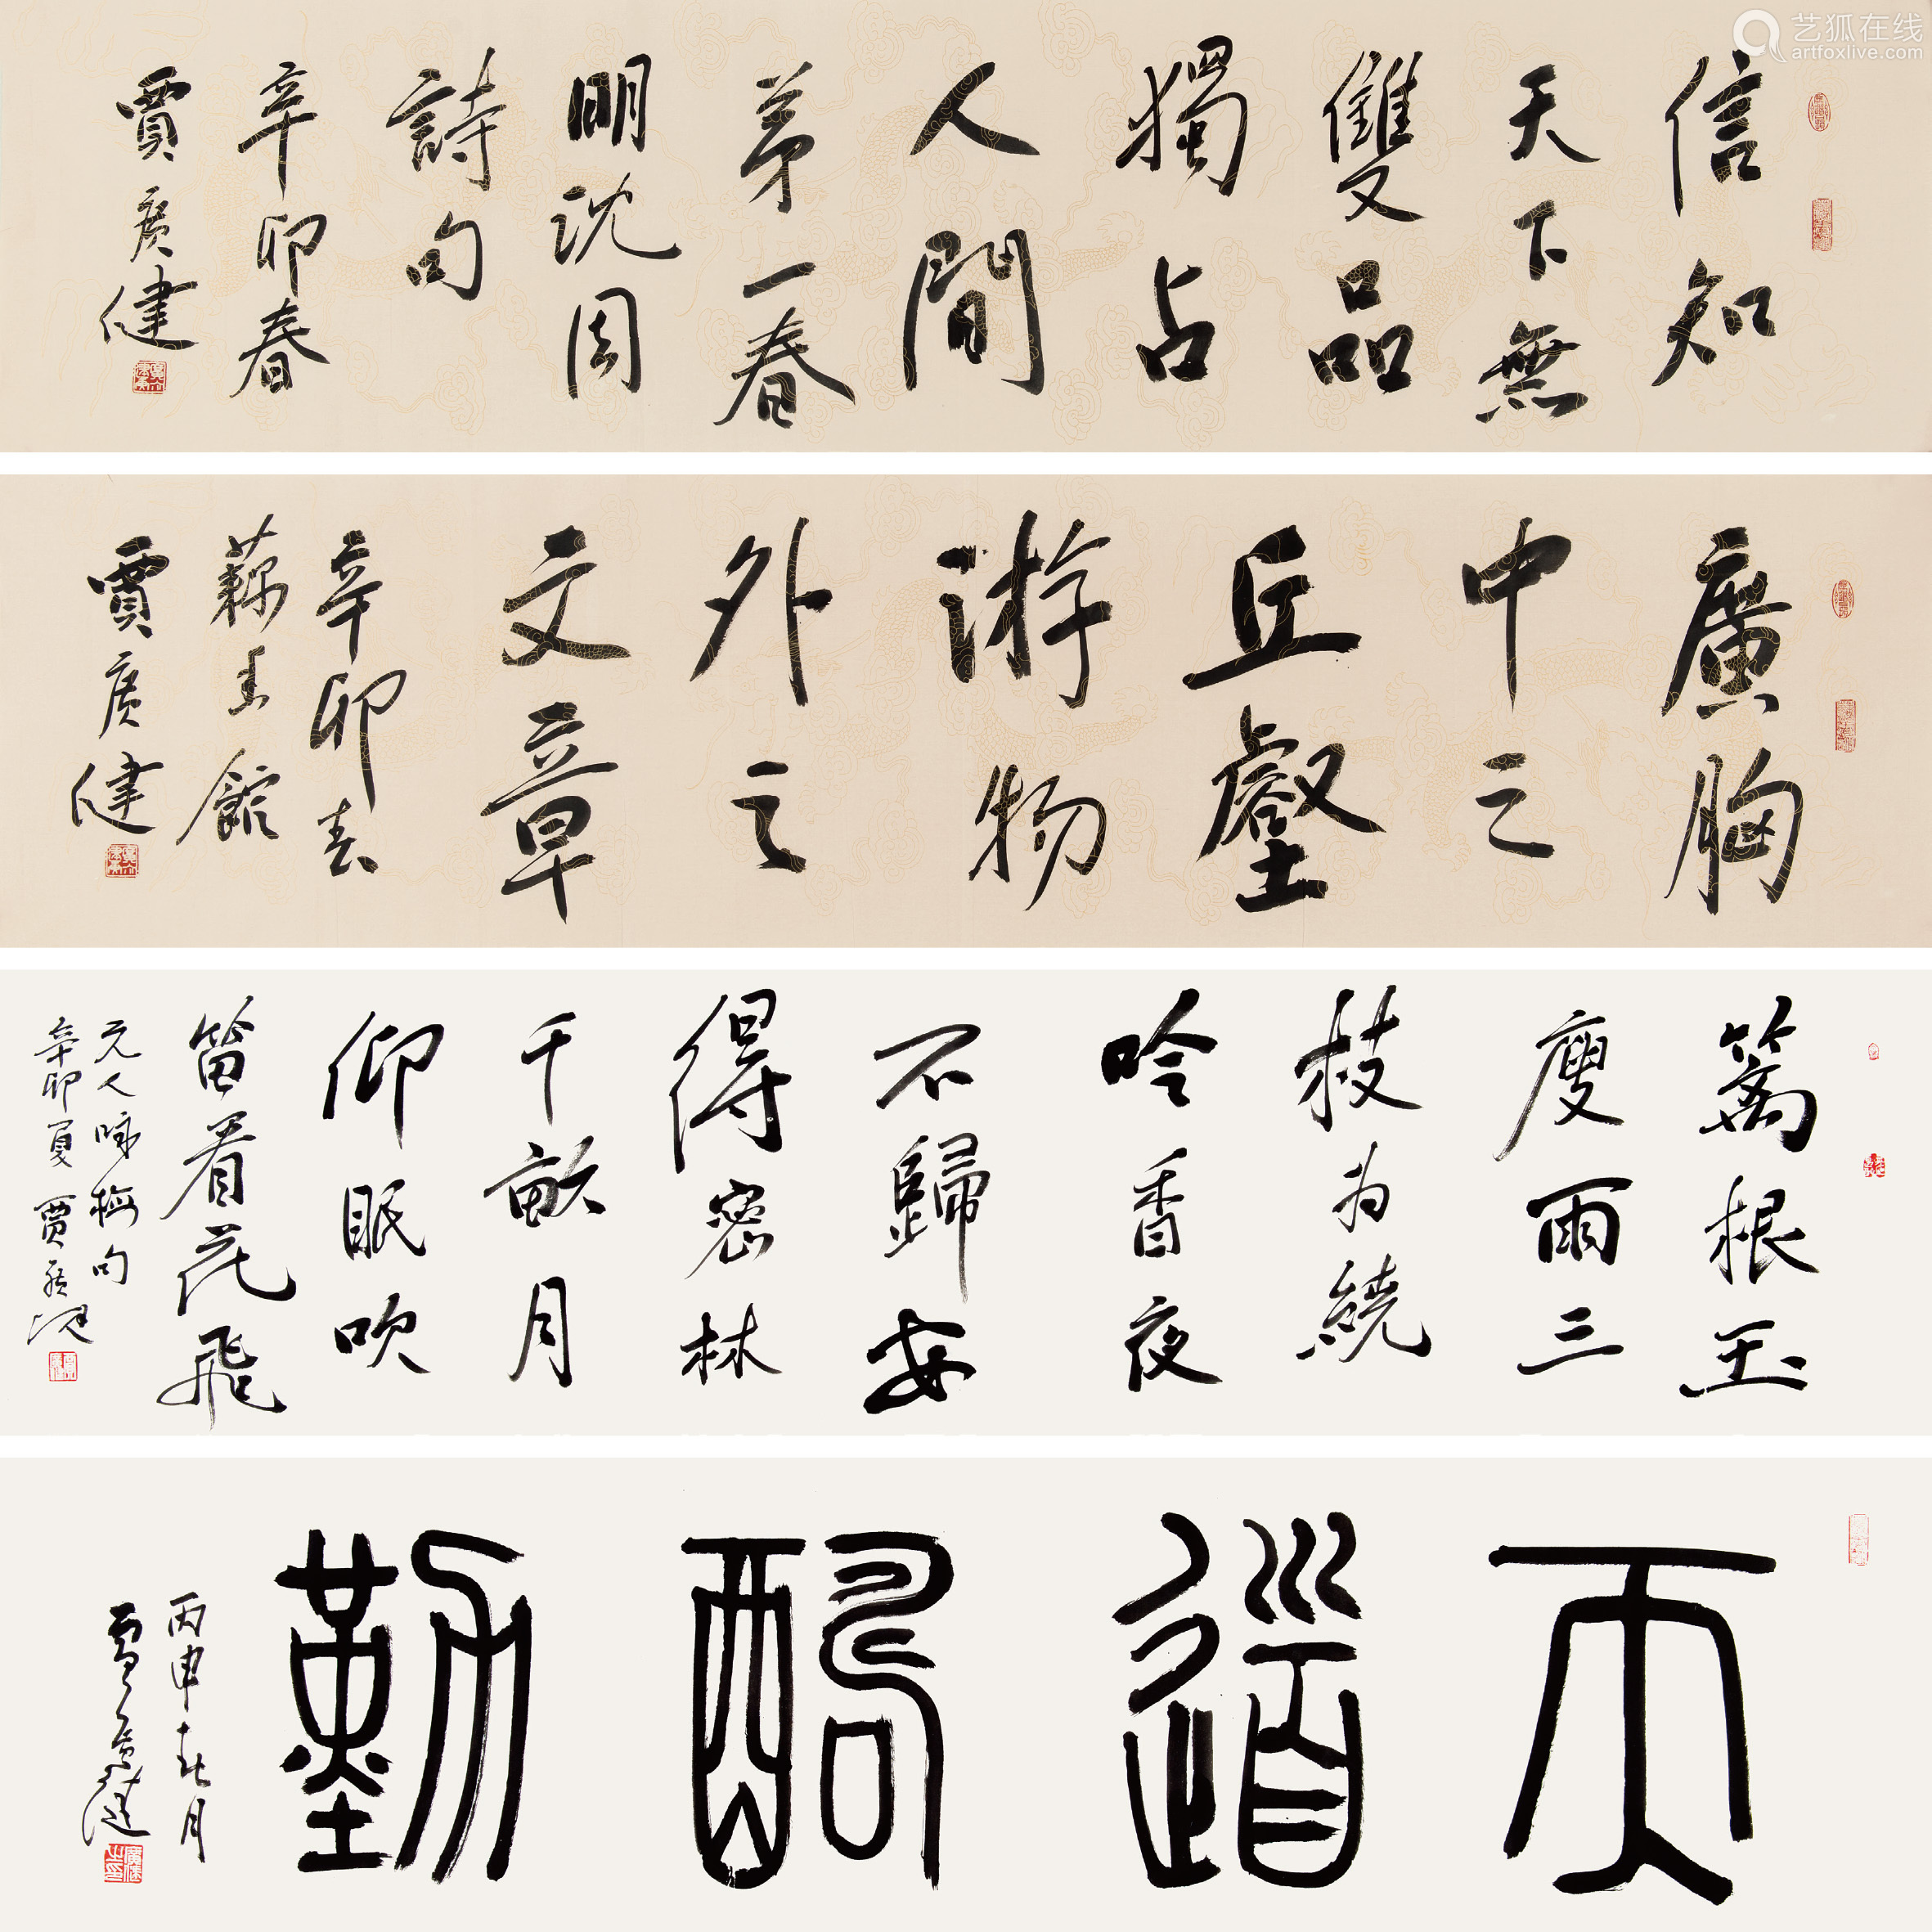 艺狐在线
artfoxlive.com
信知
天下無
雙品
獨占
人間
第一春
明沈周
詩句
辛卯春
賈廣健
廣胸
中之
丘壑
游物
外之
文章
辛卯春
藕香館
賈廣健
篱根玉
瘦雨三
枝为繞
吟香夜
不歸安
得密林
千畝月
仰眠吹
笛看花飛
元人咏梅句
辛卯夏 賈廣健
天
道
酬
勤
丙申春月
賈廣健